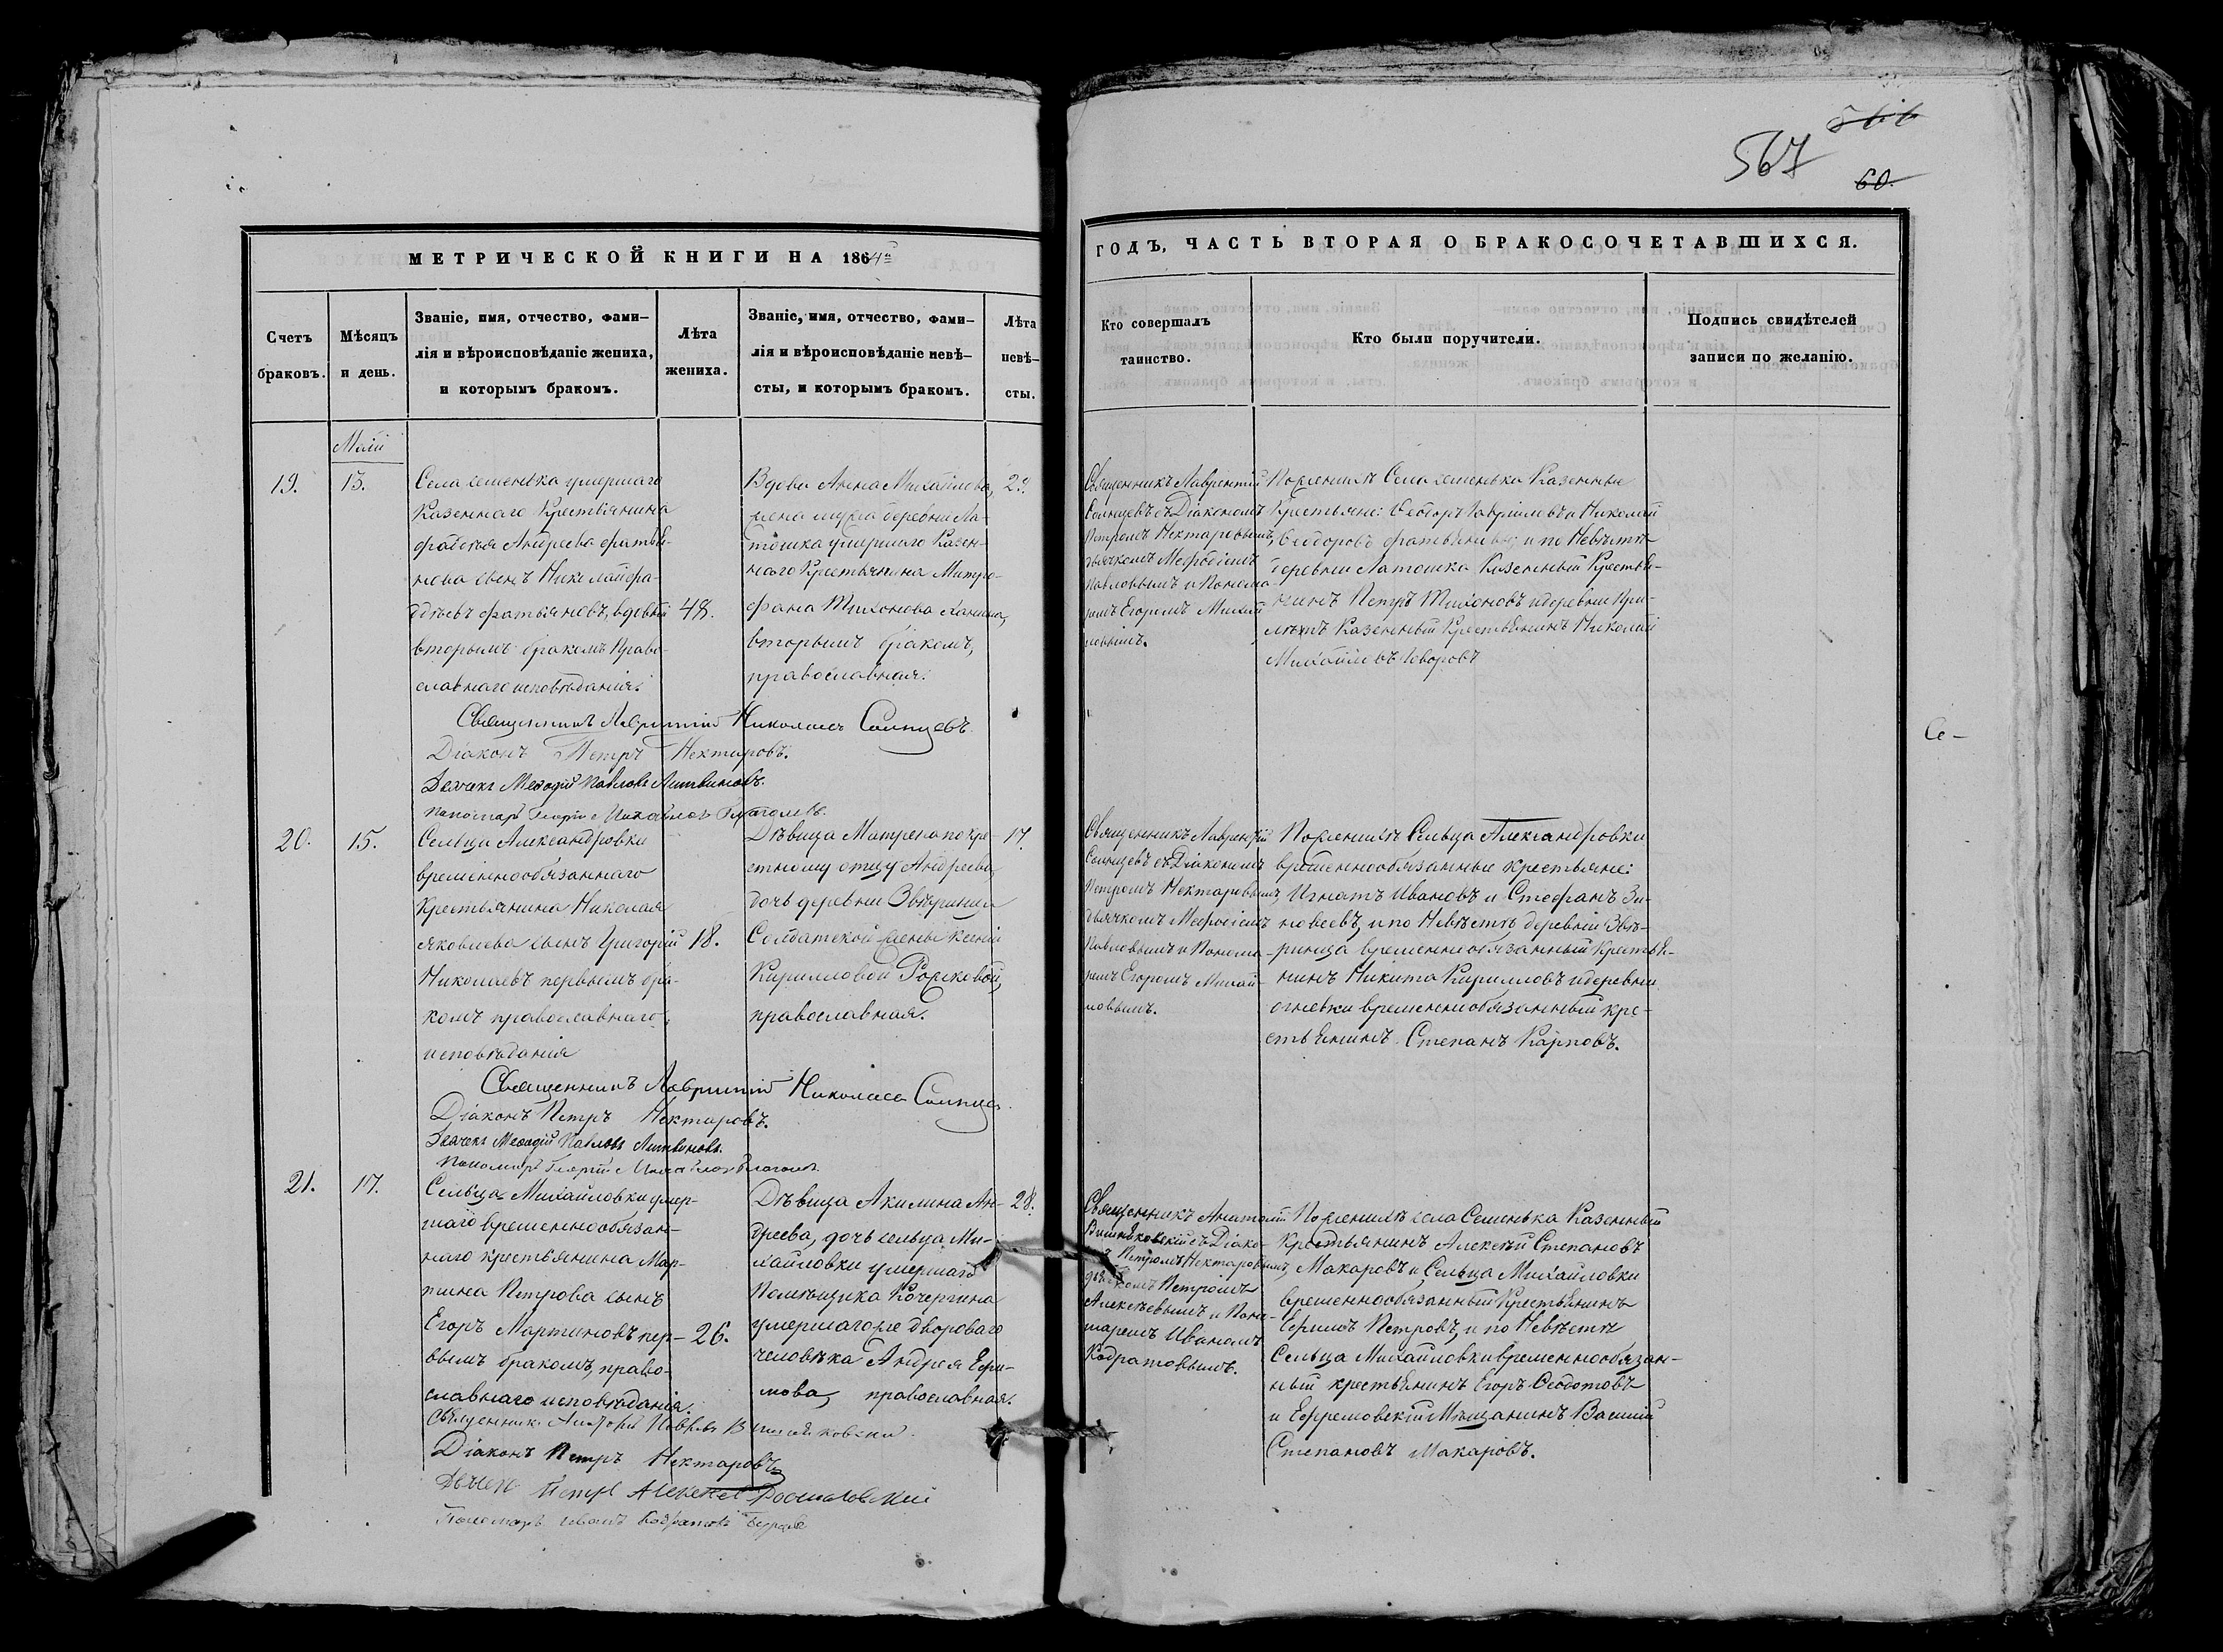 566
567
60.
МЕТРИЧЕСКОЙ КНИГИ НА 1864й
Счетъ браковъ.
Мѣсяцъ и день.
Званіе, имя, отчество, фами-
лія и вѣроисповѣданіе жениха,
и которымъ бракомъ.
Лѣта жениха.
Званіе, имя, отчество, фами-
лія и вѣроисповѣданіе невѣ-
сты, и которымъ бракомъ.
Лѣта невѣ-
сты.
ГОДЪ, ЧАСТЬ ВТОРАЯ О БРАКОСОЧЕТАВШИХСЯ.
Кто совершалъ таинство.
Кто были поручители.
Подпись свидѣтелей
записи по желанію.
Маій
19.
15.
Села семенька умершаго
Казеннаго Крестьянина
Андреева фатья-
нова сынъ Николай фа-
дѣевъ фатьяновъ, вдовый
вторымъ бракомъ Право-
славнаго исповѣданія.
48.
Вдова Анна Михайлова,
жена мужа деревни Ла-
тошка умершаго Казен-
наго Крестьянина Митро-
фана Тихонова
вторымъ бракомъ,
православная.
Священникъ Лаврентій
Солнцевъ съ Діакономъ
Петромъ Нектаровымъ,
дьячкомъ Мефодіемъ
Павловымъ и Понома-
ремъ Егоромъ Михай-
ловымъ.
По Женихѣ Села семенька Казенные
Крестьяне: Ѳеодоръ Гавриловъ и Николай
Ѳеодоровъ фатьяновы; и по Невѣстѣ
деревни Латошка Казенный Крестья-
нинъ Петръ Тихоновъ и деревни
Казенный Крестьянинъ Николай
Михайловъ
Священникъ Лаврентій Николаевъ Солнцевъ.
Діаконъ Петръ Нектаровъ.
Дьячекъ Меѳодій Павловъ Литвиновъ.
Пономарь Георгій Михайловъ
Се-
20.
15.
Сельца Александровки
временнообязаннаго
Крестьянина Николая
Яковлева сынъ Григорій
Николаевъ первымъ бра-
комъ православнаго
исповѣданія
18.
Дѣвица Матрена по кре-
стному отцу Андреева
дочь деревни Звѣринца
Солдатской жены Ксеніи
Кирилловой Рожковой,
православная.
17.
Священникъ Лаврентій
Солнцевъ съ Діакономъ
Петромъ Нектаровымъ,
дьячкомъ Мефодіемъ
Павловымъ и Понома-
ремъ Егоромъ Михай-
ловымъ.
По Женихѣ Сельца Александровки
временнообязанные крестьяне:
Игнатъ Ивановъ и Стефанъ Зи-
новеевъ, и по Невѣстѣ деревни Звѣ-
ринца временнообязанный крестья-
нинъ Никита Кирилловъ и деревни
огневки временнообязанный кре-
стьянинъ Степанъ Карповъ.
Священникъ Лаврентій Николаевъ
Діаконъ Петръ Нектаровъ.
Дьячекъ Меѳодій Павловъ Литвиновъ.
Пономарь Георгій Михайловъ
21.
17.
Сельца Михайловки умер-
шаго временнообязан-
наго крестьянина Мар-
тина Петрова сынъ
Егоръ Мартиновъ пер-
вымъ бракомъ, право-
славнаго исповѣданія.
26.
Дѣвица Акилина Ан-
дреева, дочь сельца Ми-
хайловки умершаго
Помѣщика Кочергина
умершаго же двороваго
человѣка Андрея Ефи-
мова, православная.
28.
Священникъ Анатолій
съ Діако-
Петромъ Нектаровымъ,
дьячкомъ Петромъ
Алексѣевымъ и Поно-
маремъ Иваномъ
Кодратовымъ.
По Женихѣ села Семенька Казенный
Крестьянинъ Алексѣй Степановъ
Макаровъ и Сельца Михайловки
временнообязанный Крестьянинъ
Ефимъ Петровъ, и по Невѣстѣ
Сельца Михайловки временнообязан-
ный крестьянинъ Егоръ Ѳедотовъ
и Ефремовскій Мѣщанинъ Василій
Степановъ Макаровъ.
Діаконъ Петръ Нектаровъ
Петръ
Пономарь Иванъ Кодратовъ